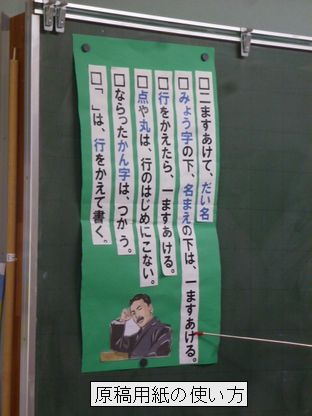 □二ますあけて、だい名
□みょう字の下、名まえの下は、一ますあける。
□行をかえたら、一ますあける。
□点や丸は、行のはじめにこない。
□ならったかん字は、つかう。
□「 」は、行をかえて書く。
原稿用紙の使い方